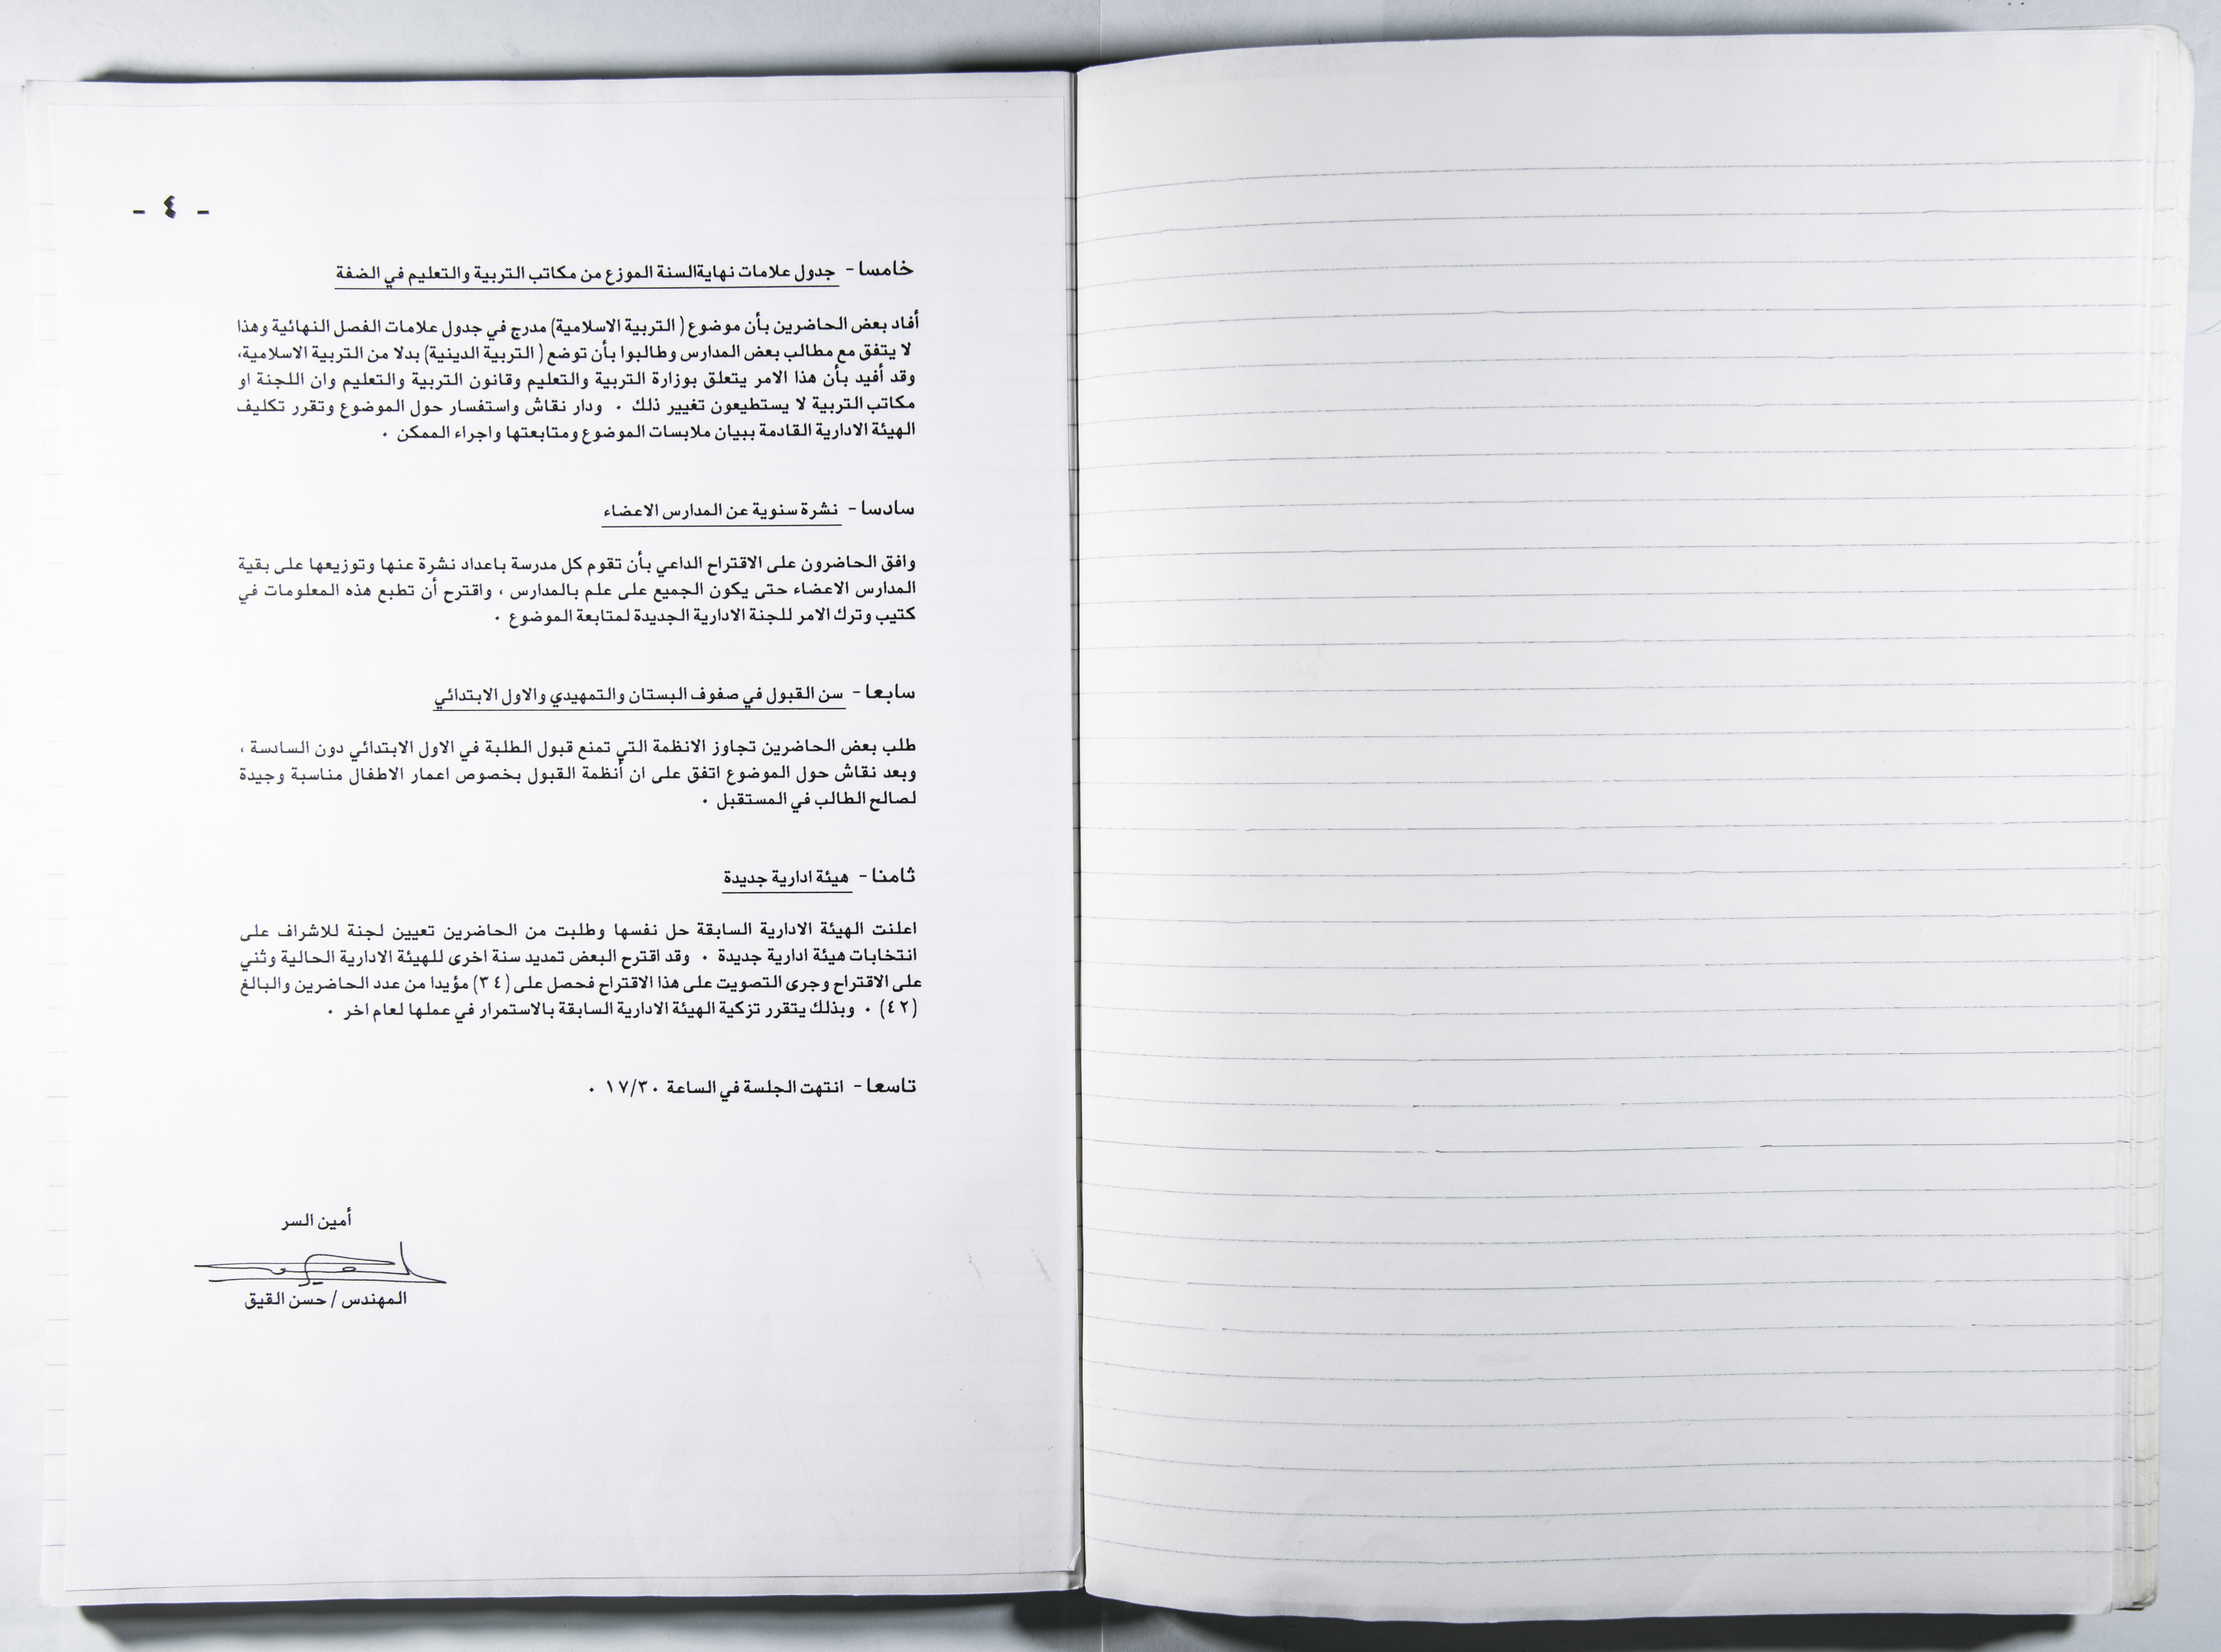 - ٤ -
خامسا - جدول علامات نهايةالسنة الموزع من مكاتب التربية والتعليم في الضفة
أفاد بعض الحاضرين بأن موضوع ( التربية الاسلامية) مدرج في جدول علامات الفصل النهائية وهذا
لا يتفق مع مطالب بعض المدارس وطالبوا بأن توضع ( التربية الدينية) بدلا من التربية الاسلامية،
وقد أفيد بأن هذا الامر يتعلق بوزارة التربية والتعليم وقانون التربية والتعليم وان اللجنة او
مكاتب التربية لا يستطيعون تغيير ذلك ٠ ودار نقاش واستفسار حول الموضوع وتقرر تكليف
الهيئة الادارية القادمة ببيان ملابسات الموضوع ومتابعتها واجراء الممكن ٠
سادسا - نشرة سنوية عن المدارس الاعضاء
وافق الحاضرون على الاقتراح الداعي بأن تقوم كل مدرسة باعداد نشرة عنها وتوزيعها على بقية
المدارس الاعضاء حتى يكون الجميع على علم بالمدارس ، واقترح أن تطبع هذه المعلومات في
كتيب وترك الامر للجنة الادارية الجديدة لمتابعة الموضوع ٠
سابعا - سن القبول في صفوف البستان والتمهيدي والاول الابتدائي
طلب بعض الحاضرين تجاوز الانظمة التي تمنع قبول الطلبة في الاول الابتدائي دون السادسة ،
وبعد نقاش حول الموضوع اتفق على ان أنظمة القبول بخصوص اعمار الاطفال مناسبة وجيدة
لصالح الطالب في المستقبل ٠
ثامنا - هيئة ادارية جديدة
اعلنت الهيئة الادارية السابقة حل نفسها وطلبت من الحاضرين تعيين لجنة للاشراف على
انتخابات هيئة ادارية جديدة ٠ وقد اقترح البعض تمديد سنة اخرى للهيئة الادارية الحالية وثني
على الاقتراح وجرى التصويت على هذا الاقتراح فحصل على (٣٤) مؤيدا من عدد الحاضرين والبالغ
(٤٢) ٠ وبذلك يتقرر تزكية الهيئة الادارية السابقة بالاستمرار في عملها لعام اخر ٠
تاسعا - انتهت الجلسة في الساعة ١٧/٣٠ ٠
أمين السر
المهندس / حسن القيق